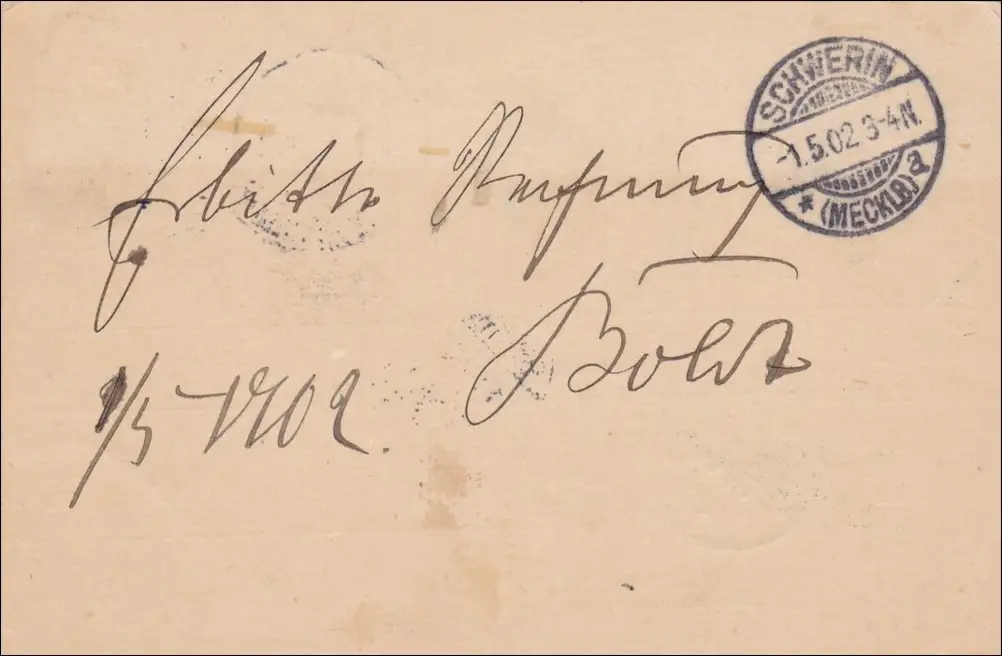 SCHWERIN
-1.5.02.3-4N.
* (MECKLB) a
Erbitte Rechnung
Boldt
1/5 1902.